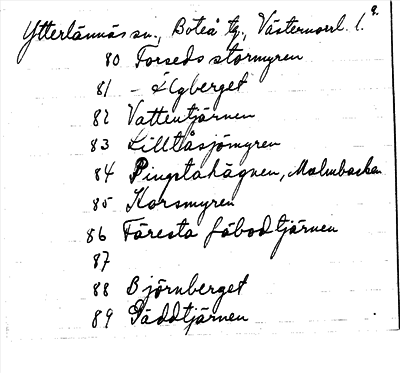 Ytterlännäs sn., Boteå tg., Västernorrl. l. 9.
80 Forseds stormyren
81 - Älgberget
82 Vattentjärnen
83 Lilltåsjömyren
84 Pingstahägnen, Malmbackan
85 Korsmyren
86 Färesta fäbodtjärnen
87
88 Björnberget
89 Säddtjärnen